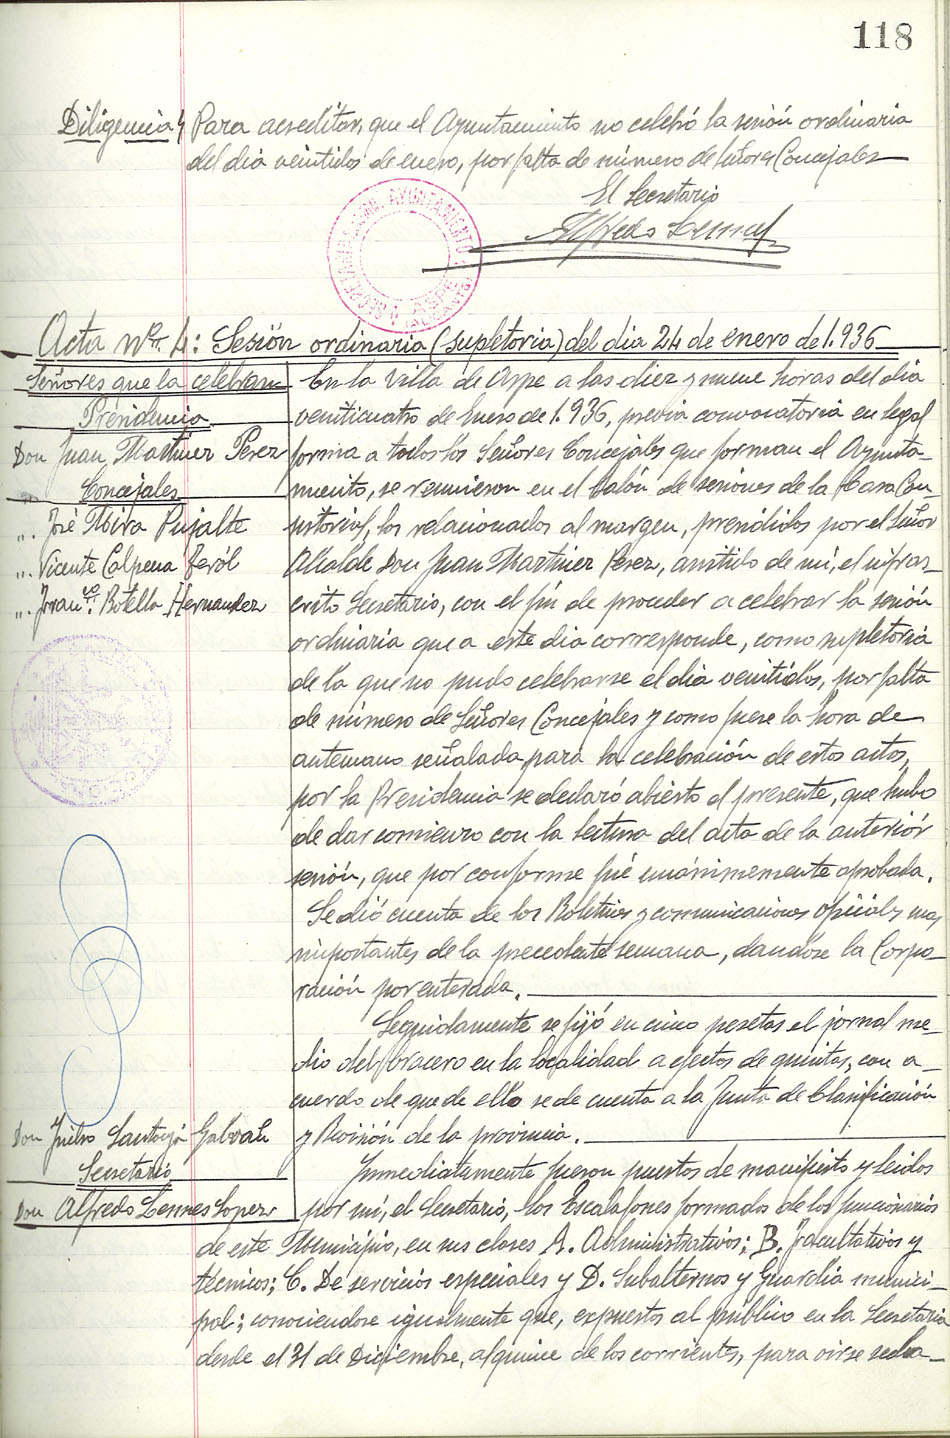 118
Diligencia} Para acreditar, que el Ayuntamiento no celebró la sesión ordinaria
del dia veintidos de enero, por falta de número de Señores Concejales
El Secretario
Alfredo Lennes
AYUNTAMIENTO
ASPE
(ALICANTE)
Acta Nº. 4: Sesión ordinaria (supletoria) del dia 24 de enero de 1.936
Señores que la celebran
Presidencia
Don Juan Martinez Perez
Concejales
". José Mira Pujalte
". Vicente Calpena
". Franco. Botella Hernandez
Don Santoyo Galvañ
Secretario
Don Alfredo Lennes Lopez
En la Villa de Aspe a las diez y nueve horas del dia
veinticuatro de Enero de 1.936, previa convocatoria en legal
forma a todos los Señores Concejales que forman el Ayunta-
miento, se reunieron en el Salón de sesiones de la Casa Con-
sistorial, los relacionados al margen, presididos por el Señor
Alcalde Don Juan Martinez Perez, asistido de mi, el infras-
crito Secretario, con el fin de proceder a celebrar la sesión
ordinaria que a este dia corresponde, como supletoria
de la que no pudo celebrarse el dia veintidos, por falta
de número de Señores Concejales y como fuese la hora de
antemano señalada para la celebración de estos actos,
por la Presidencia se declaró abierto el presente, que hubo
de dar comienzo con la lectura del acta de la anterior
sesión, que por conforme fué unánimemente aprobada.
Se dió cuenta de los Boletines y comunicaciones oficiales mas
importantes de la precedente semana, dandose la Corpo-
ración por enterada.
Seguidamente se fijó en cinco pesetas el jornal me-
dio del bracero en la localidad a efectos de quintas, con a-
cuerdo de que de ello se de cuenta a la Junta de Clasificación
y Revisión de la provincia.
Inmediatamente fueron puestos de manifiesto y leidos
por mi, el Secretario, los Escalafones formados de los funcionarios
de este Municipio, en sus clases A. Administrativos; B. Facultativos y
técnicos; C. De servicios especiales y D. Subalternos y Guardia munici-
pal; conociendose igualmente que, expuestos al público en la Secretaria
desde el 31 de Diciembre, al quince de los corrientes, para oirse recla-